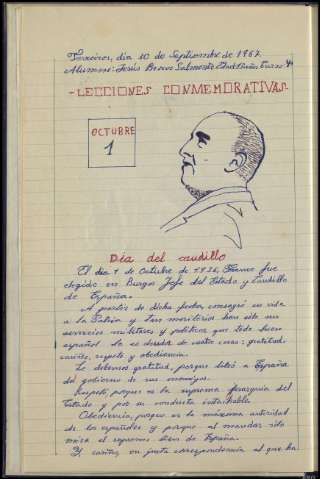 día 10 de Septiembre de 1967.
Alumno: Jesús
- LECCIONES CONMEMORATIVAS -
OCTUBRE
1
Día del caudillo
El día 1 de Octubre de 1936, Franco fue
elegido en Burgos Jefe del Estado y Caudillo
de España.
A partir de dicha fecha, consagró su vida
a la Patria y Tan meritorios han sido sus
servicios militares y políticos que todo buen
español le es deudor de cuatro cosas: gratitud,
cariño, respeto y obediencia.
Le debemos gratitud, porque libró a España
del gobierno de sus enemigos.
Respeto, porque es la suprema jerarquía del
Estado y por su conducta intachable.
Obediencia, porque es la máxima autoridad
de los españoles y porque al mandar sólo
mira el supremo bien de España.
Y cariño, en justa correspondencia al que ha